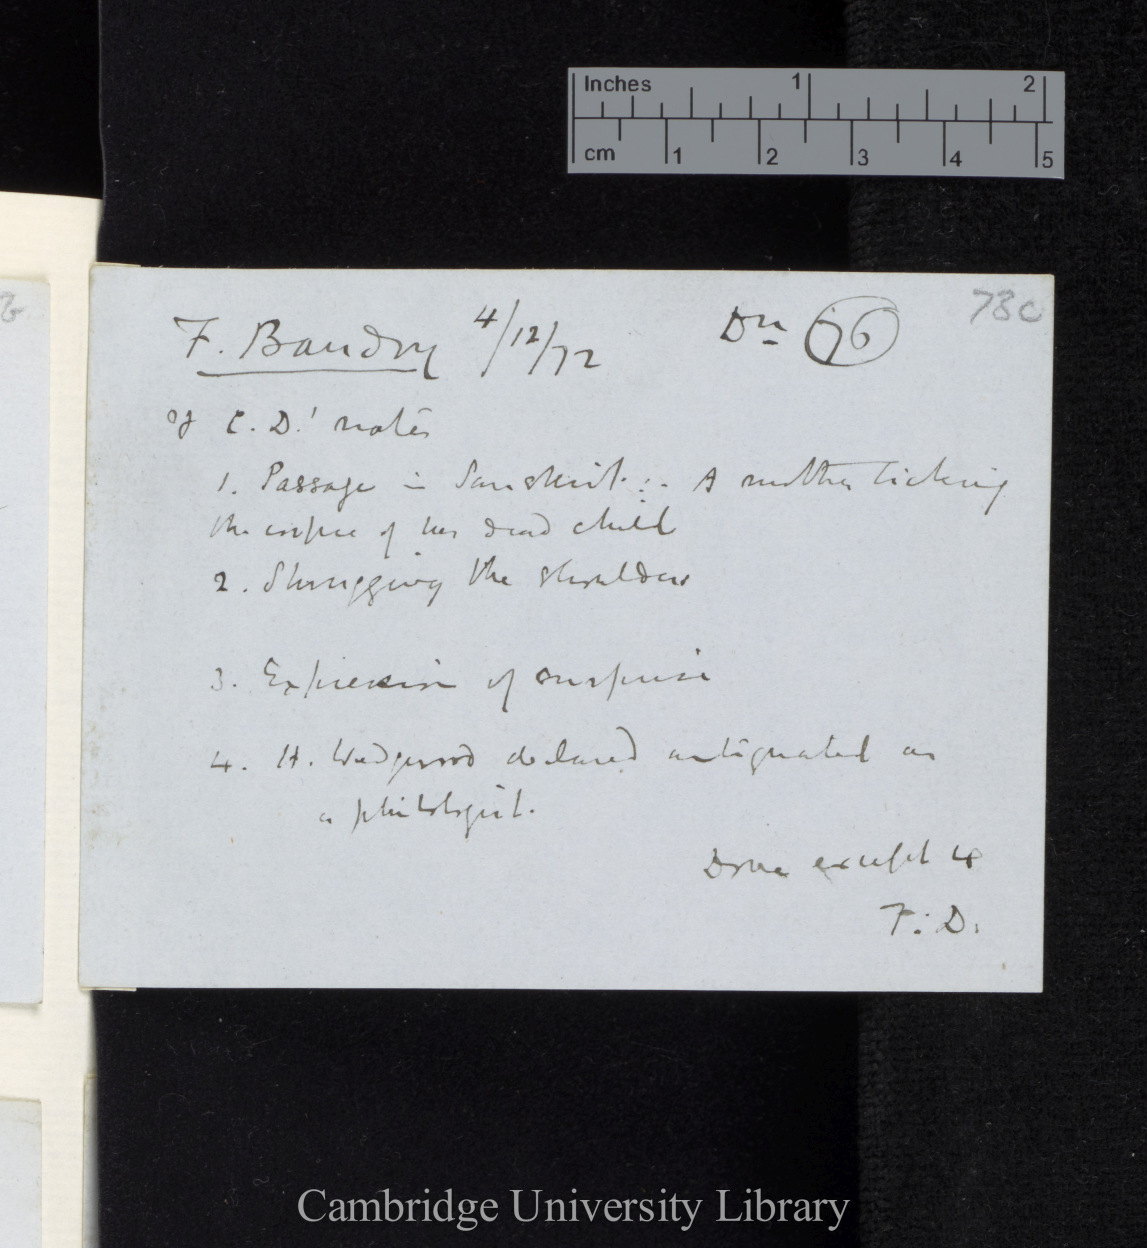 Inches 1 2
cm 1 2 3 4 5
73c
F. Baudry 4/12/72 Dn 76
C. D.' notes
1. Passage in Sanskrit :- A mother licking
the corpse of her dead child
2. Shrugging the shoulders
3. Expression of surprise
4. H. Wedgwood declared antiquated as
a philologist.
Done except 4
F. D.
Cambridge University Library